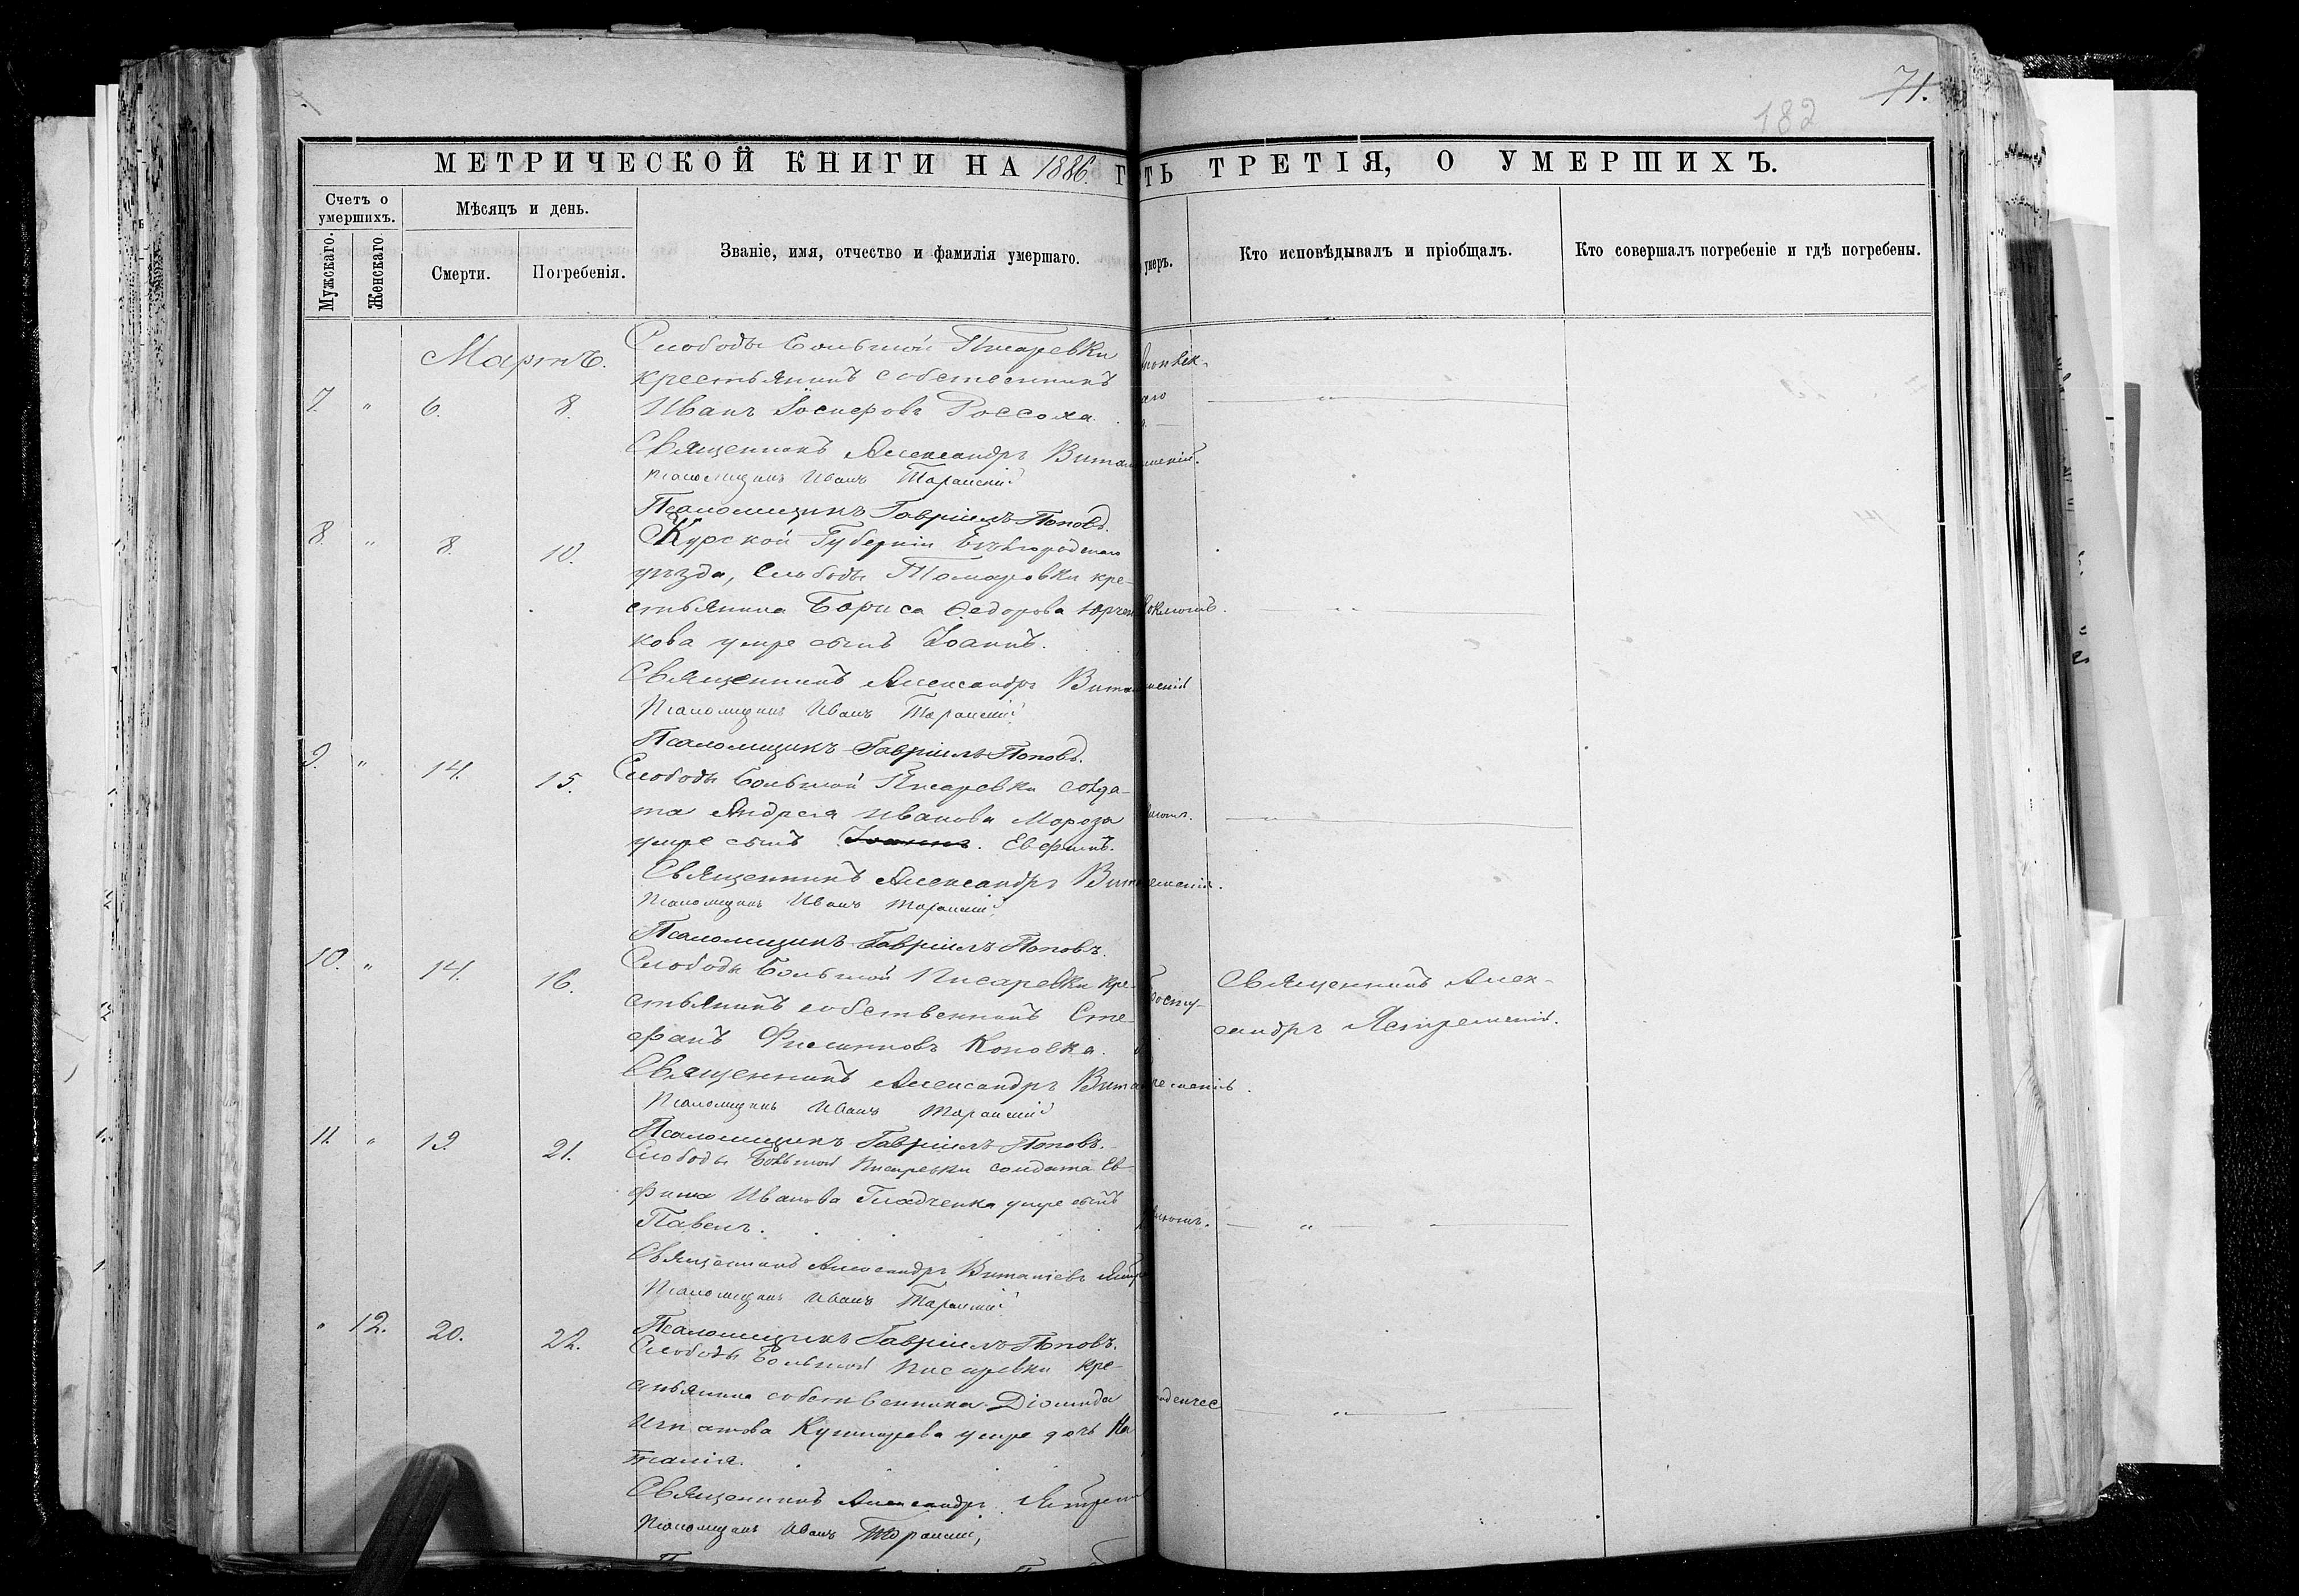 71.
182
МЕТРИЧЕСКОЙ КНИГИ НА 1886. Г
ТЬ ТРЕТІЯ, О УМЕРШИХЪ.
Счетъ о умершихъ.
Мужскаго.
Женскаго
Мѣсяцъ и день.
Смерти.
Погребенія.
Званіе, имя, отчество и фамилія умершаго.
умеръ.
Кто исповѣдывалъ и пріобщалъ.
Кто совершалъ погребеніе и гдѣ погребены.
Мартъ.
Слободы Большой Писаревки
крестьянинъ собственникъ
7. " 6. 8. Иванъ Іосифовъ Россоха.
Священникъ Александръ
Псаломщикъ Иванъ
Псаломщикъ Гавріилъ Поповъ.
8. " 8. 10. Курской Губерніи Бѣлгородскаго
уѣзда, Слободы Томаровки кре-
стьянина Бориса Федорова Юрчен
кова умре сынъ Іоаннъ.
Священникъ Александръ
Псаломщикъ Иванъ
Псаломщикъ Гавріилъ Поповъ.
9. " 14. 15. Слободы Большой Писаревки солда-
та Андрея Иванова Мороза
умре сынъ Іоаннъ. Евфимъ.
Священникъ Александръ
Псаломщикъ Иванъ
Псаломщикъ Гавріилъ Поповъ.
10. " 14. 16. Слободы Большой Писаревки кре-
стьянинъ собственникъ Сте-
фанъ Филипповъ
Священникъ Алек-
сандръ Ястремскій.
Священникъ Александръ
Псаломщикъ Иванъ
Псаломщикъ Гавріилъ Поповъ.
11. " 19. 21. Слободы Большой Писаревки солдата Ев-
фима Иванова Гладченка умре сынъ
Павелъ.
Священникъ Александръ
Псаломщикъ Иванъ
Псаломщикъ Гавріилъ Поповъ.
" 12. 20. 22. Слободы Большой Писаревки кре-
стьянина собственника Діомида
Игнатова Кушнарева умре дочь На
талія.
Священникъ Александръ
Псаломщикъ Иванъ